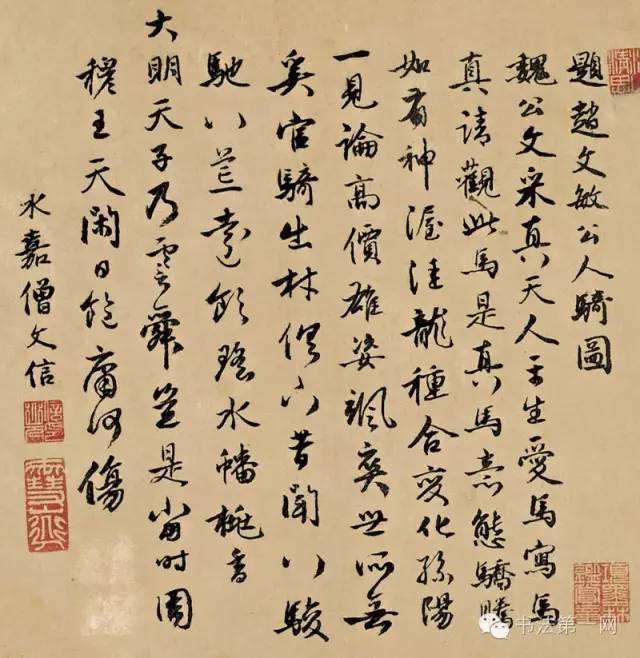 題趙文敏公人騎圖
魏公文采真天人平生愛馬寫馬
真請觀此馬是真馬意態驕騰
如有神渥洼龍種合變化孫陽
一見論高價雄姿颯爽世所無
奚官騎出林下昔聞八駿
馳八荒遠飲瑤水蟠桃香
大明天子乃堯舜豈是當時周
穆王天閑日飽庸何傷
永嘉僧文信
书法第一网